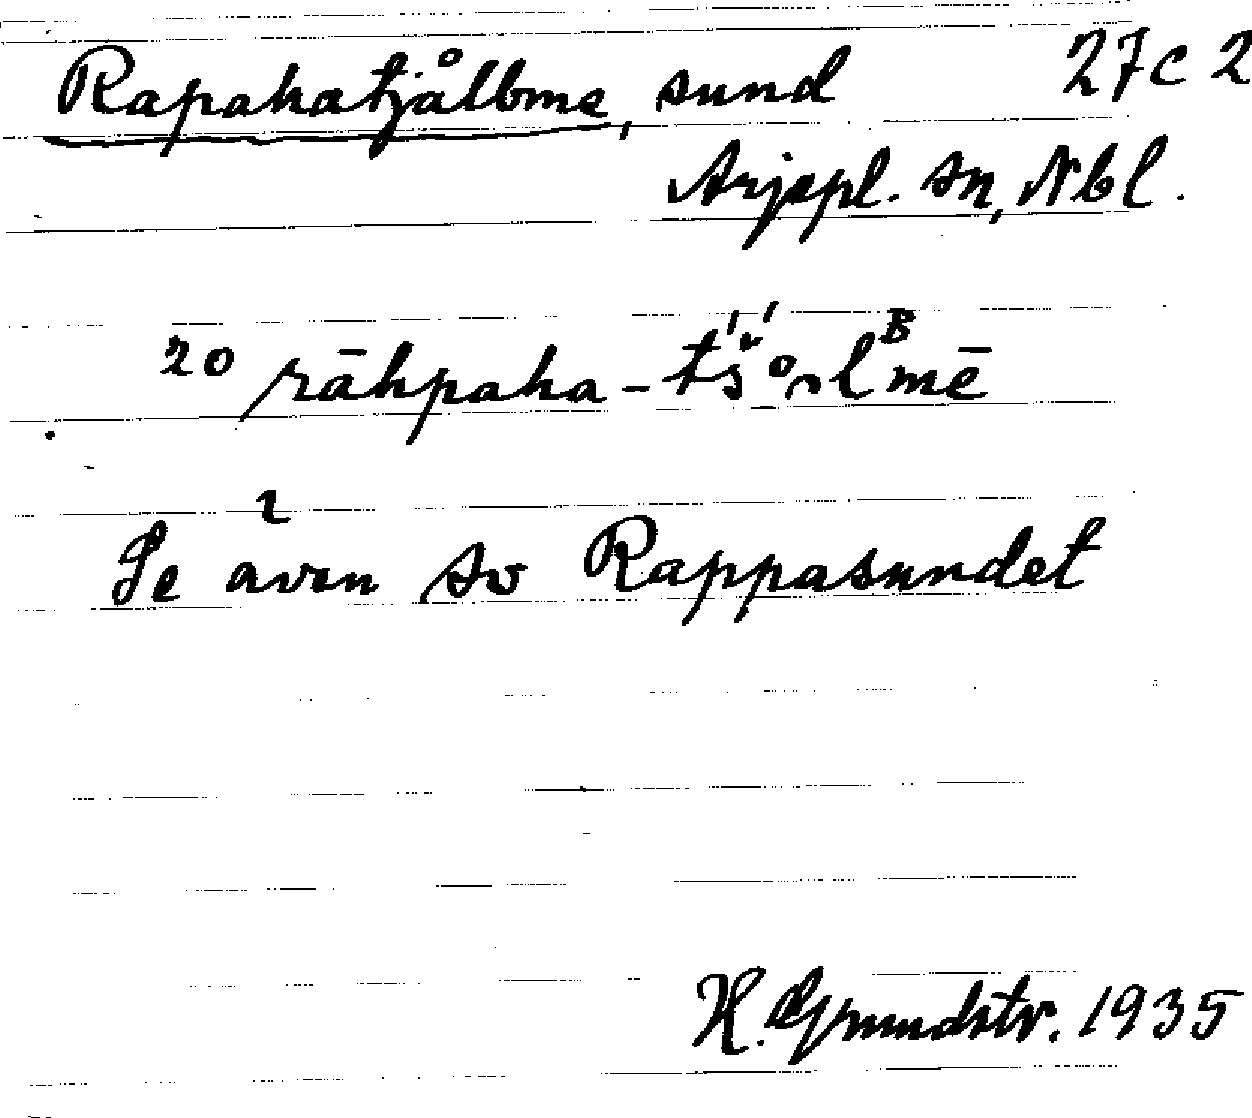 Rapahatjålbme, sund 27c2
Arjepl. sn, Nbl.
20 rāhpaha-tš́oₒlᴮmē
Se även sv Rappasundet
H. Grundstr. 1935